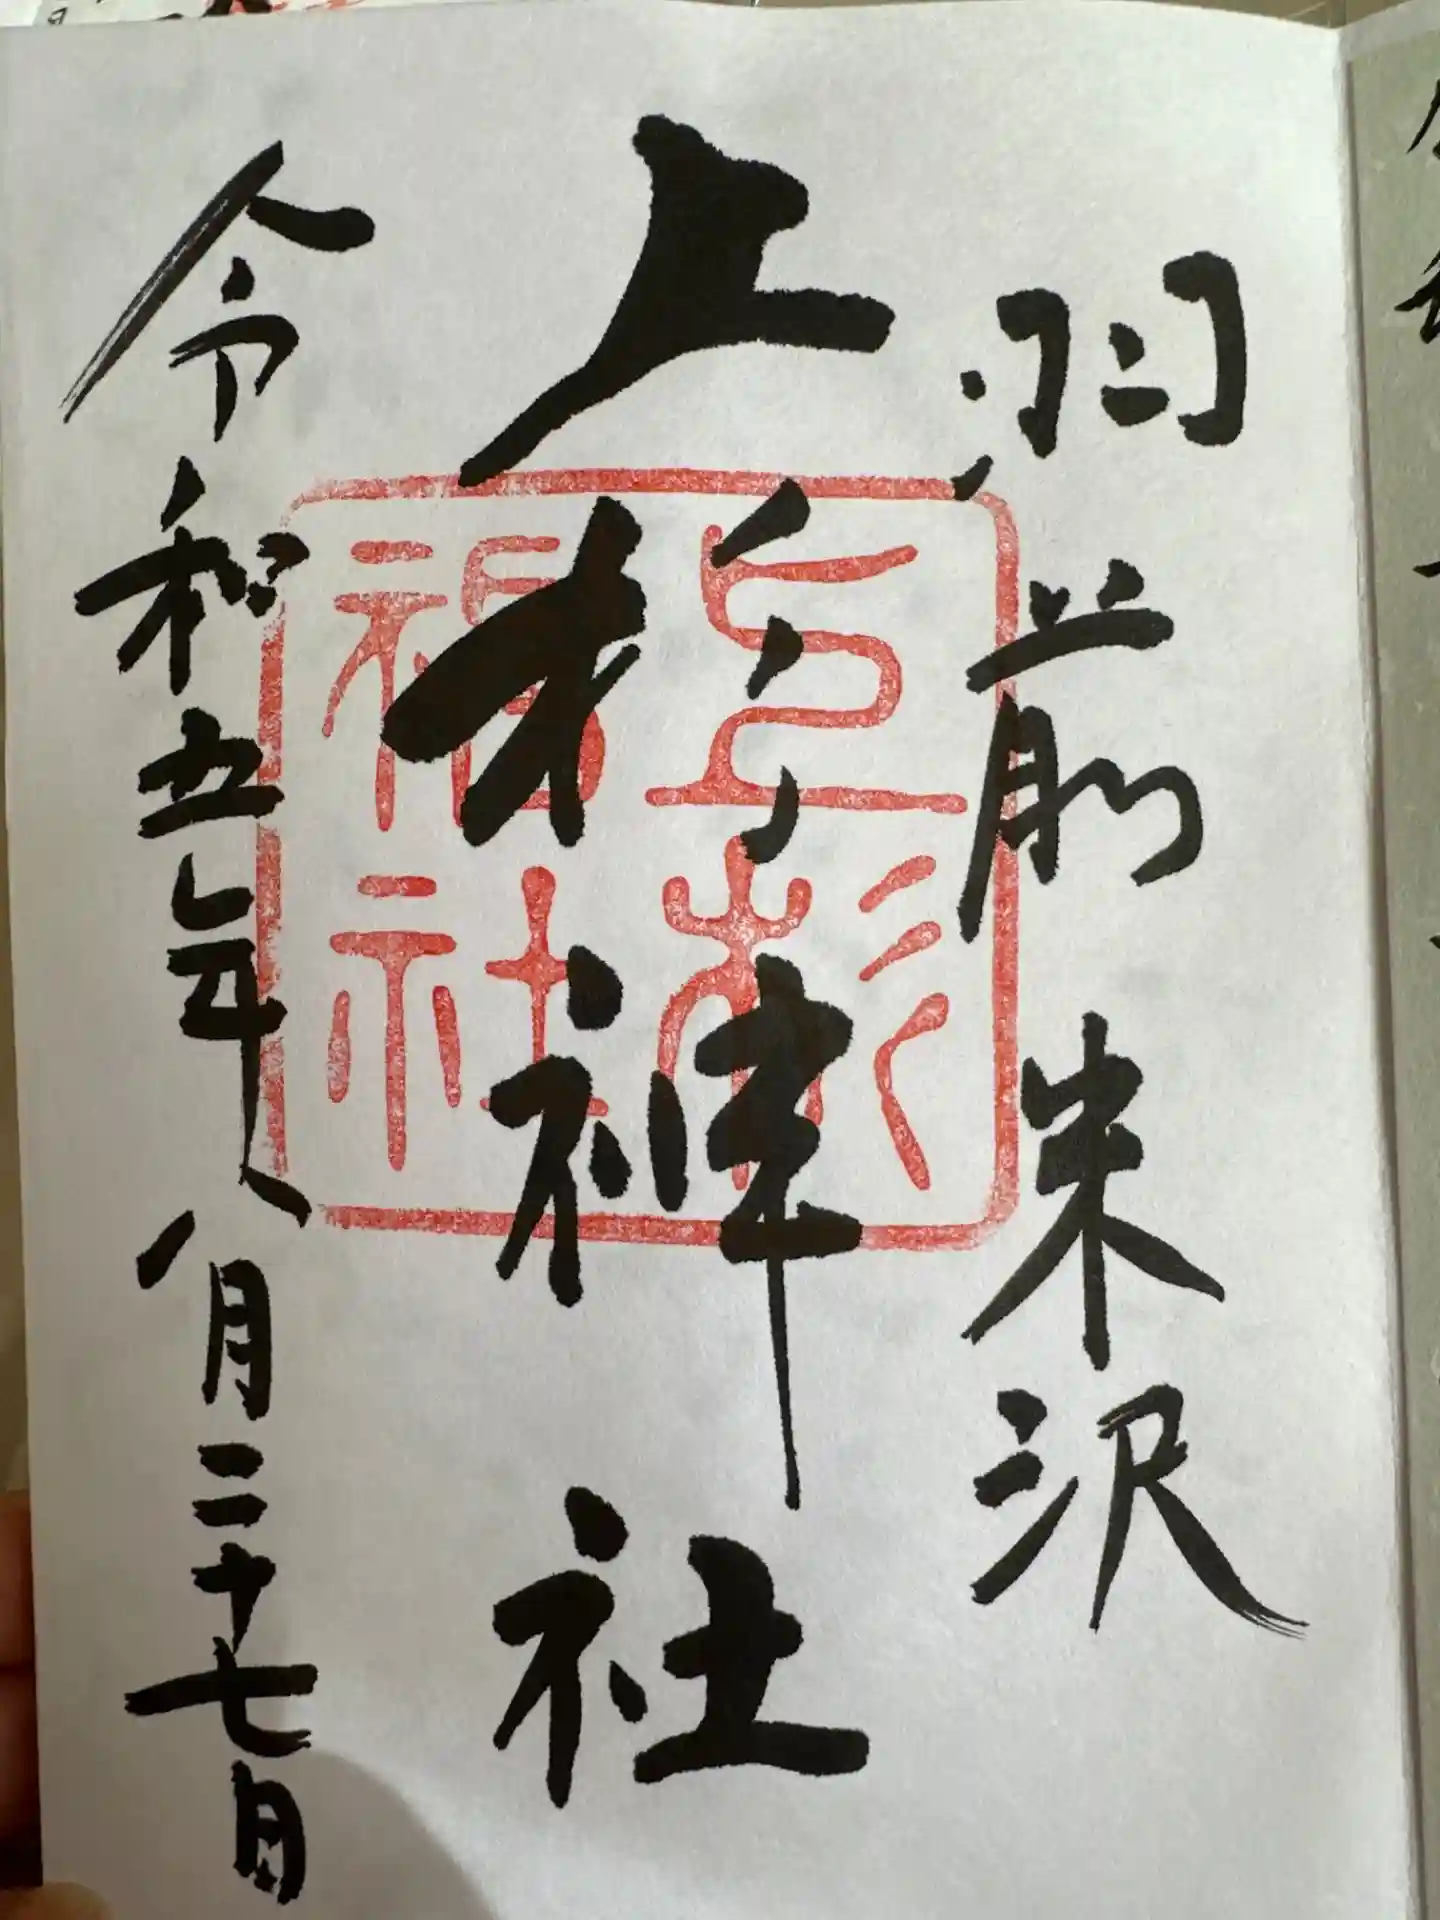 羽前米沢
上杉神社
令和五年八月二十七日
上杉神社